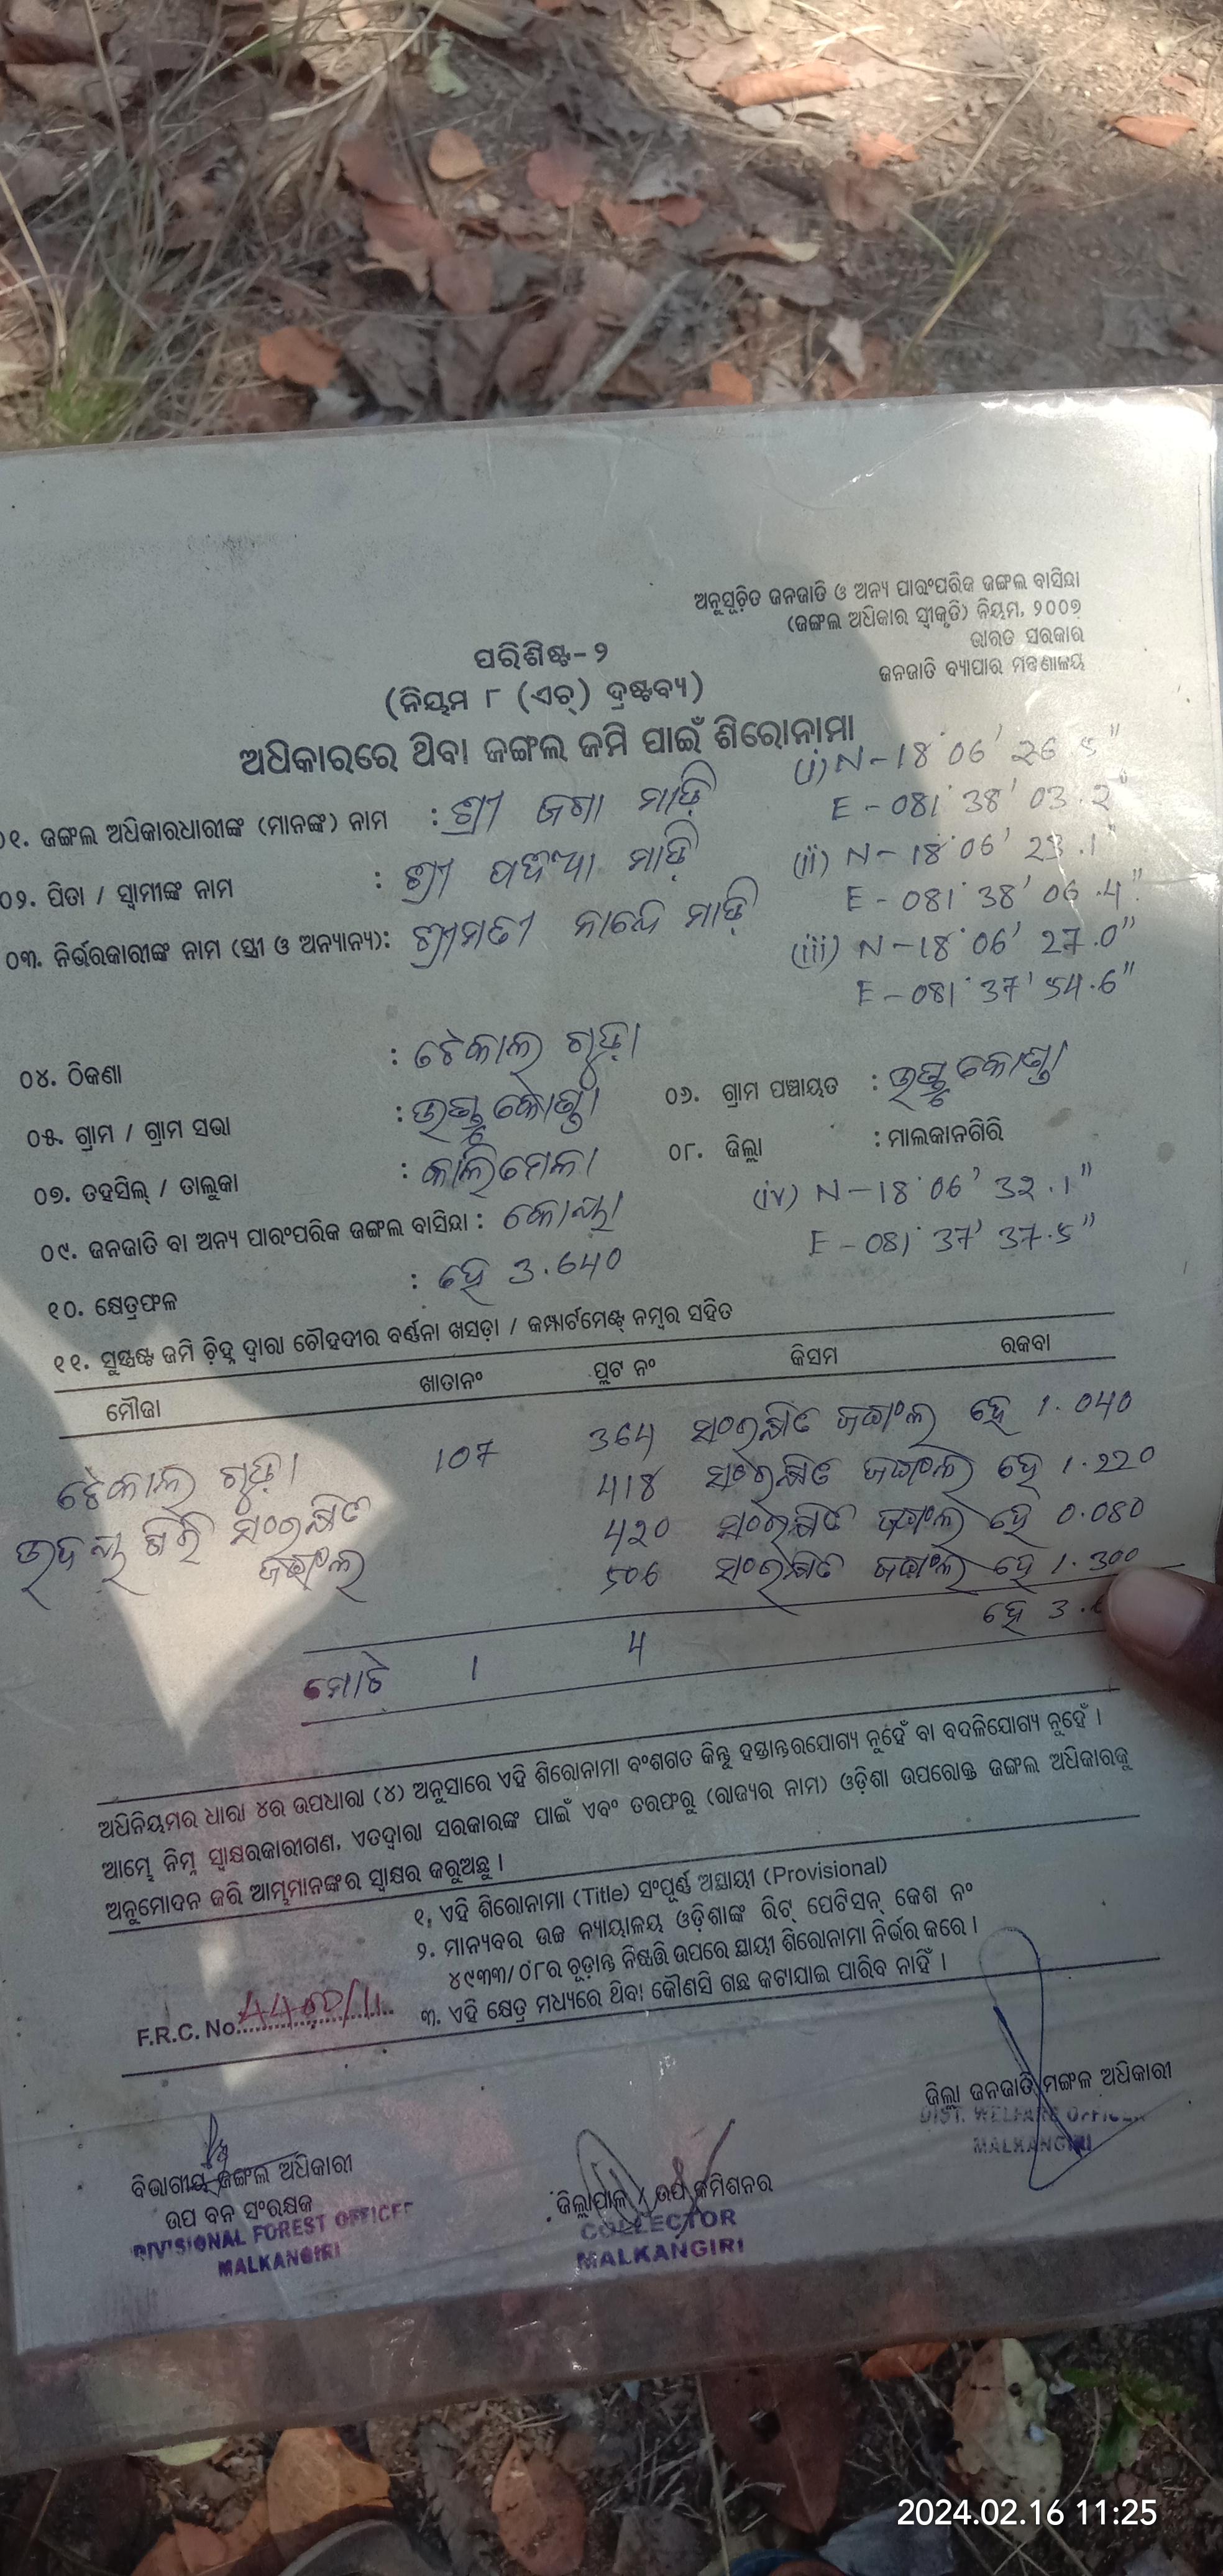 ଅନୁସୂଚିତ ଜନଜାତି ଓ ଅନ୍ୟ ପାରଂପରିକ ଜଙ୍ଗଲ ବାସିନ୍ଦା
(ଜଙ୍ଗଲ ଅଧିକାର ସ୍ୱୀକୃତି) ନିୟମ, ୨୦୦୭
ଭାରତ ସରକାର
ଜନଜାତି ବ୍ୟାପାର ମନ୍ତ୍ରଣାଳୟ
ପରିଶିଷ୍ଟ-୨
(ନିୟମ ୮ (ଏଚ୍) ଦ୍ରଷ୍ଟବ୍ୟ)
ଅଧିକାରରେ ଥିବା ଜଙ୍ଗଲ ଜମି ପାଇଁ ଶିରୋନାମା
(i) N-18°06' 26.5"
E-081°38' 03.2"
୦୧. ଜଙ୍ଗଲ ଅଧିକାରଧାରୀଙ୍କ (ମାନଙ୍କ) ନାମ : ଶ୍ରୀ ଜଗା ମାଡ଼ି
(ii) N-18°06' 23.1"
E-081°38' 06.4"
୦୨. ପିତା / ସ୍ୱାମୀଙ୍କ ନାମ : ଶ୍ରୀ ମାଡ଼ି
(iii) N-18°06' 27.0"
E-081°37' 54.6"
୦୩. ନିର୍ଭରକାରୀଙ୍କ ନାମ (ସ୍ତ୍ରୀ ଓ ଅନ୍ୟାନ୍ୟ): ଶ୍ରୀମତୀ ମାଡ଼ି
୦୪. ଠିକଣା : ଟେକାଲ ଗୁଡ଼ା
୦୫. ଗ୍ରାମ / ଗ୍ରାମ ସଭା :
୦୬. ଗ୍ରାମ ପଞ୍ଚାୟତ :
୦୭. ତହସିଲ୍ / ତାଲୁକା : କାଲିମେଳା
୦୮. ଜିଲ୍ଲା : ମାଲକାନଗିରି
୦୯. ଜନଜାତି ବା ଅନ୍ୟ ପାରଂପରିକ ଜଙ୍ଗଲ ବାସିନ୍ଦା : କୋୟା
(iv) N-18°06' 32.1"
E-081°37' 37.5"
୧୦. କ୍ଷେତ୍ରଫଳ : ହେ 3.640
୧୧. ସୁସ୍ପଷ୍ଟ ଜମି ଚିହ୍ନ ଦ୍ୱାରା ଚୌହଦୀର ବର୍ଣ୍ଣନା ଖସଡ଼ା / କମ୍ପାର୍ଟମେଣ୍ଟ୍ ନମ୍ବର ସହିତ
ମୌଜା ଖାତାନଂ ପ୍ଲଟ ନଂ କିସମ ରକବା
ଟେକାଲ ଗୁଡ଼ା 107 364 ସଂରକ୍ଷିତ ଜଙ୍ଗଲ ହେ 1.040
418 ସଂରକ୍ଷିତ ଜଙ୍ଗଲ ହେ 1.220
ଗିରି ସଂରକ୍ଷିତ 420 ସଂରକ୍ଷିତ ଜଙ୍ଗଲ ହେ 0.080
ଜଙ୍ଗଲ 506 ସଂରକ୍ଷିତ ଜଙ୍ଗଲ ହେ 1.300
ମୋଟ 1 4 ହେ 3.
ଅଧିନିୟମର ଧାରା ୪ର ଉପଧାରା (୪) ଅନୁସାରେ ଏହି ଶିରୋନାମା ବଂଶଗତ କିନ୍ତୁ ହସ୍ତାନ୍ତରଯୋଗ୍ୟ ନୁହେଁ ବା ବଦଳିଯୋଗ୍ୟ ନୁହେଁ ।
ଆମ୍ଭେ ନିମ୍ନ ସ୍ୱାକ୍ଷରକାରୀଗଣ, ଏତଦ୍ୱାରା ସରକାରଙ୍କ ପାଇଁ ଏବଂ ତରଫରୁ (ରାଜ୍ୟର ନାମ) ଓଡ଼ିଶା ଉପରୋକ୍ତ ଜଙ୍ଗଲ ଅଧିକାରକୁ
ଅନୁମୋଦନ କରି ଆମ୍ଭମାନଙ୍କର ସ୍ୱାକ୍ଷର କରୁଅଛୁ ।
୧. ଏହି ଶିରୋନାମା (Title) ସଂପୂର୍ଣ୍ଣ ଅସ୍ଥାୟୀ (Provisional)
୨. ମାନ୍ୟବର ଉଚ୍ଚ ନ୍ୟାୟାଳୟ ଓଡ଼ିଶାଙ୍କ ରିଟ୍ ପେଟିସନ୍ କେଶ ନଂ
୪୯୩୩/୦୮ର ଚୂଡ଼ାନ୍ତ ନିଷ୍ପତ୍ତି ଉପରେ ସ୍ଥାୟୀ ଶିରୋନାମା ନିର୍ଭର କରେ ।
୩. ଏହି କ୍ଷେତ୍ର ମଧ୍ୟରେ ଥିବା କୌଣସି ଗଛ କଟାଯାଇ ପାରିବ ନାହିଁ ।
F.R.C. No.
ଜିଲ୍ଲା ଜନଜାତି ମଙ୍ଗଳ ଅଧିକାରୀ
DIST. WELFARE OFFICER
MALKANGIRI
ବିଭାଗୀୟ ଜଙ୍ଗଲ ଅଧିକାରୀ
ଉପ ବନ ସଂରକ୍ଷକ
DIVISIONAL FOREST OFFICER
MALKANGIRI
ଜିଲ୍ଲାପାଳ / ଉପ କମିଶନର
COLLECTOR
MALKANGIRI
2024.02.16 11:25